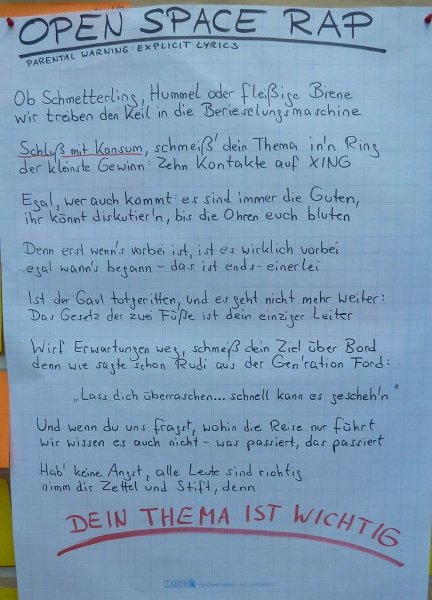 OPEN SPACE RAP
PARENTAL WARNING: EXPLICIT LYRICS
Ob Schmetterling, Hummel oder fleißige Biene
wir treiben den Keil in die Berieselungsmaschine
Schluß mit Konsum, schmeiß' dein Thema in'n Ring
der kleinste Gewinn: Zehn Kontakte auf XING
Egal, wer auch kommt: es sind immer die Guten,
ihr könnt diskutier'n, bis die Ohren euch bluten
Denn erst wenn's vorbei ist, ist es wirklich vorbei
egal wann's begann - das ist ends-einerlei
Ist der Gaul totgeritten, und es geht nicht mehr weiter:
Das Gesetz der zwei Füße ist dein einziger Leiter
Wirf Erwartungen weg, schmeiß dein Ziel über Bord
denn wie sagte schon Rudi aus der Gen'ration Ford:
„Lass dich überraschen... schnell kann es gescheh'n"
Und wenn du uns fragst, wohin die Reise nur führt
wir wissen es auch nicht - was passiert, das passiert
Hab' keine Angst, alle Leute sind richtig
nimm dir Zettel und Stift, denn
DEIN THEMA IST WICHTIG